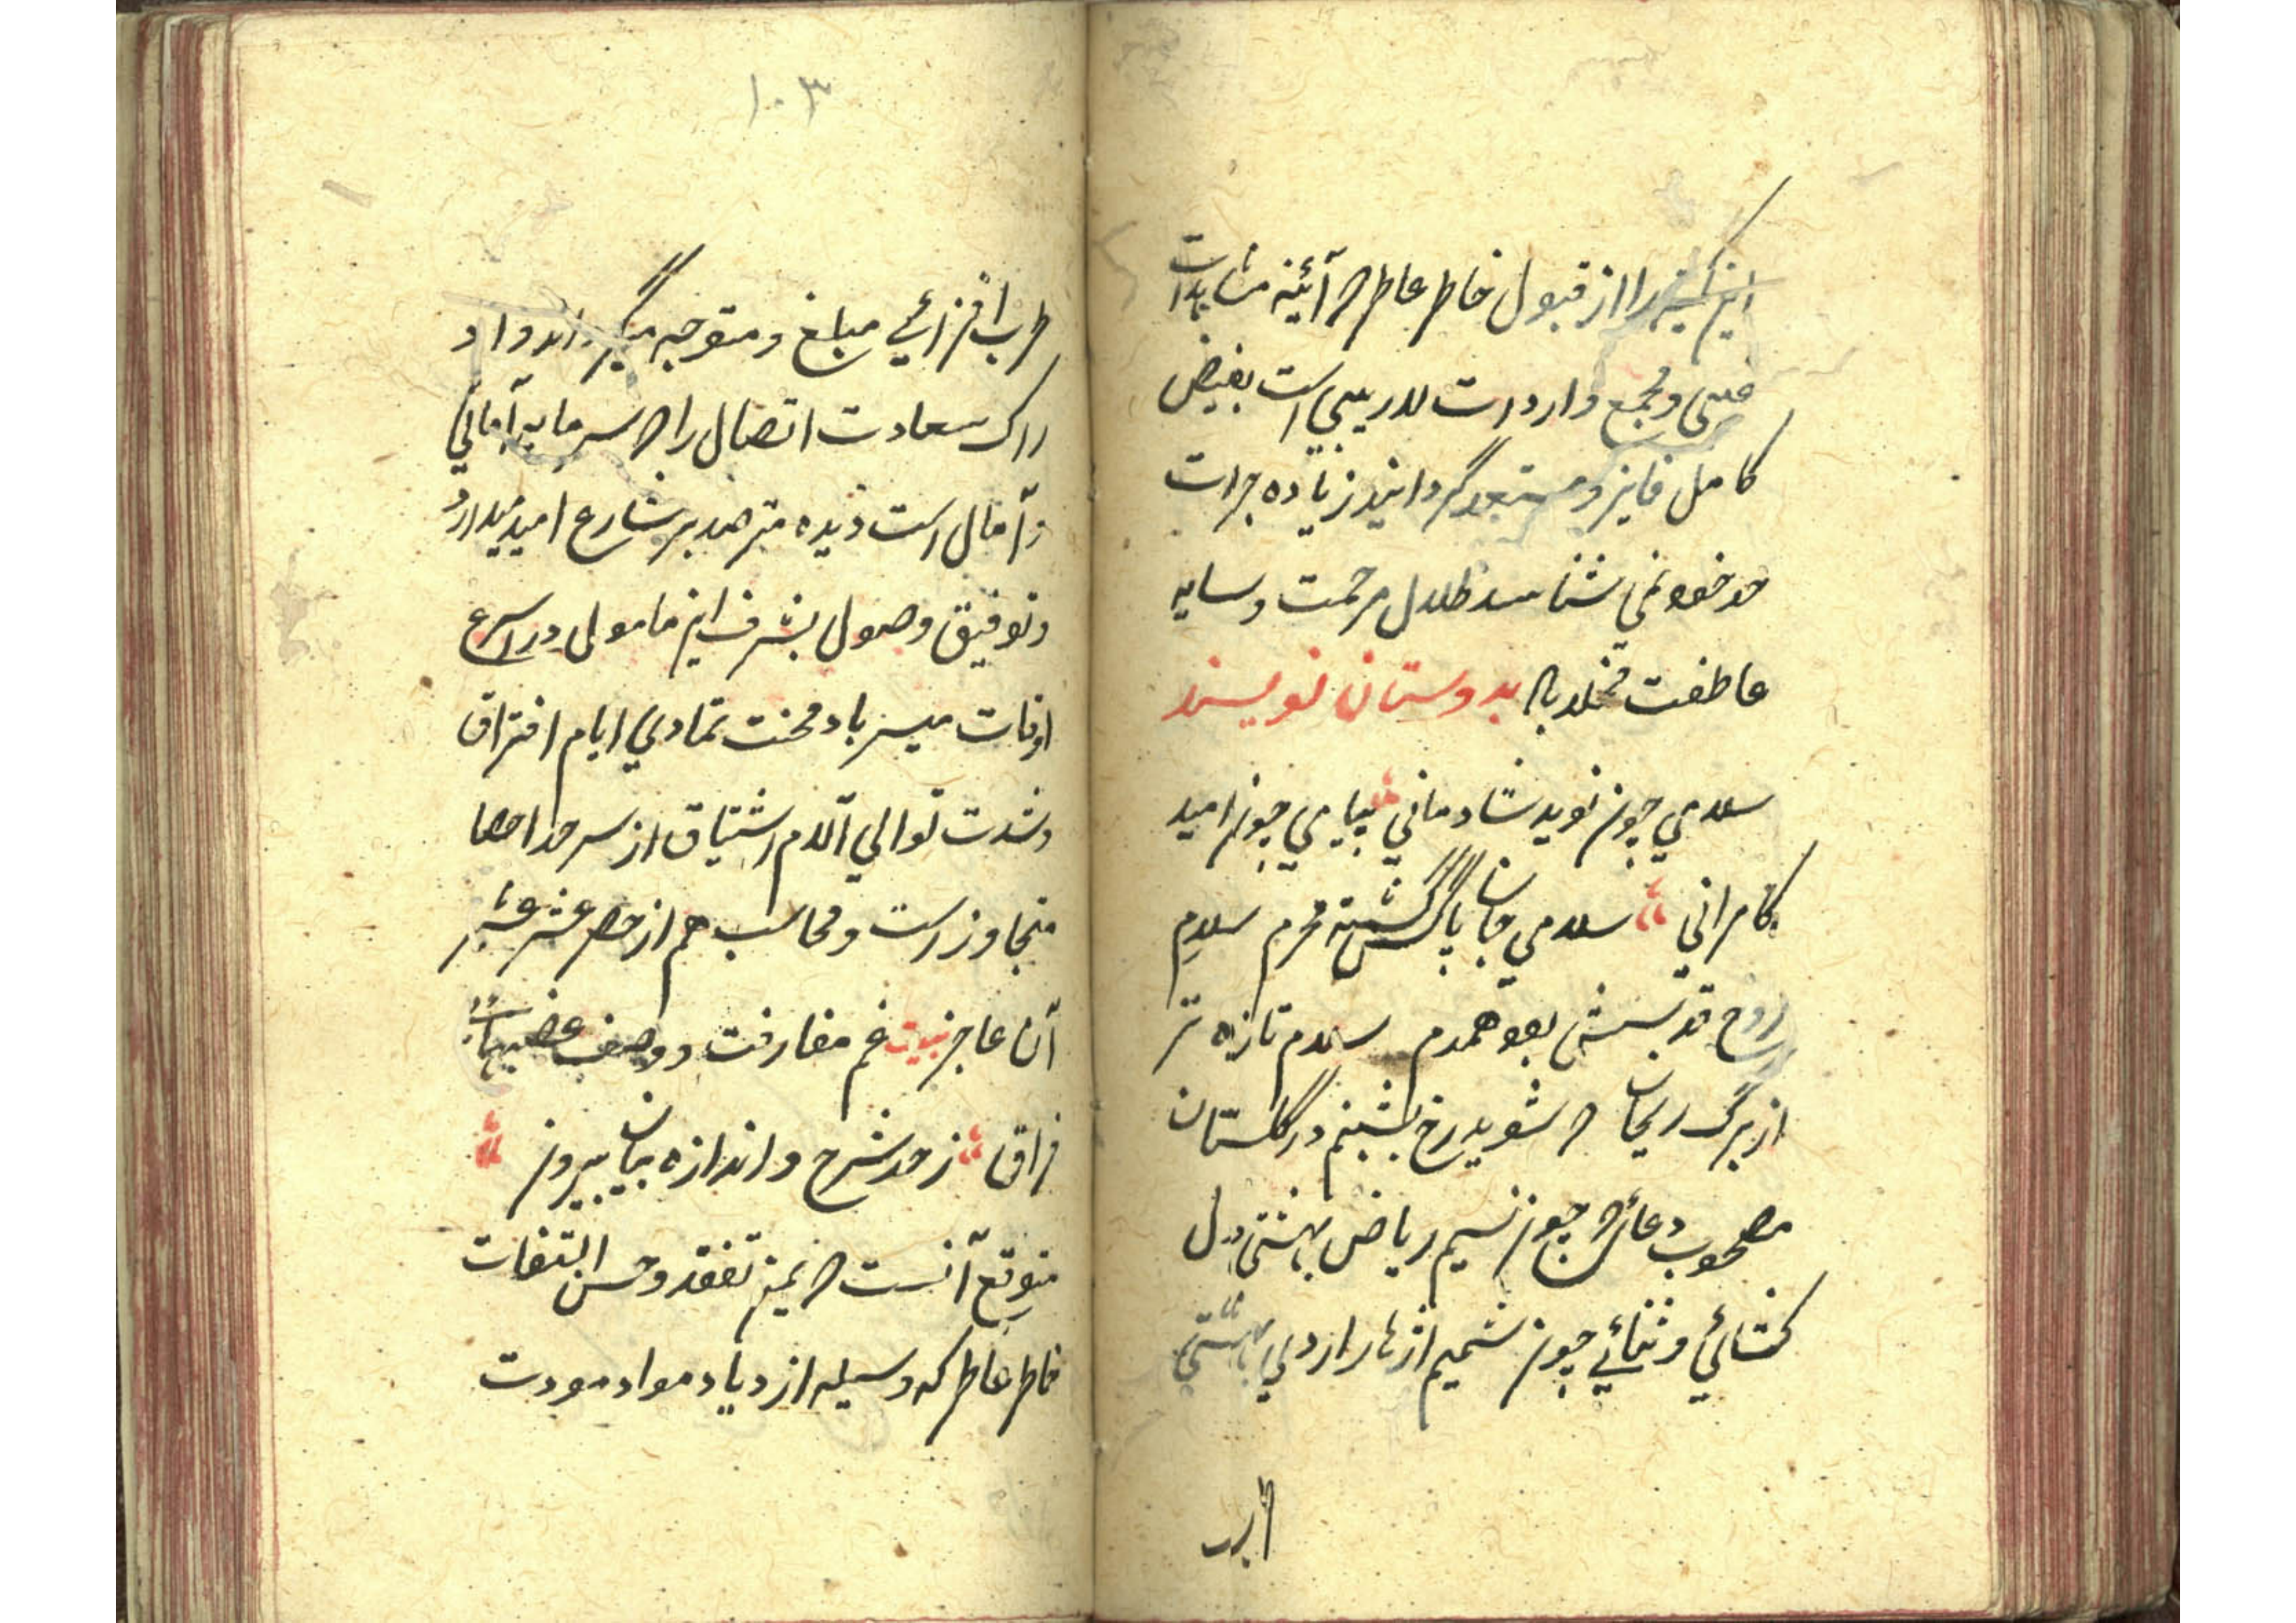 این کمینه را از قبول خاطر عاطر که آئینه مشاهدات
غیبی و مجمع واردات لاریبی است بفیض
کامل فایز و مستعد گردانیدن زیاده جرات
حد خود نمی شناسد ظلال مرحمت و سایه
عاطفت مخلد باد بدوستان نویسند
سلامی چون نوید شادمانی پیامی چون امید
کامرانی سلامی جان پاکش گشته محرم سلام
روح قدسیش بود همدم سلام تازه تر
از برگ ریحان که شوید رخ بشبنم در گلستان
مصحوب دعائی که چون نسیم ریاض بهشتی دل
کشائی و ثنائی چون شمیم ازهار اردی بهشتی
۱۰۳
طرب افزائی مبلغ و متوجه میگرداند و ادراک
سعادت اتصال را که سرمایه امانی
و آمال است دیده مترصد بر شارع امید میدارد
و توفیق وصول بشرف این مامول در اسرع
اوقات میسر باد محنت تمادی ایام افتراق
و شدت توالی آلام اشتیاق از سرحد احصا
متجاوز است و محاسب هم از حصر عشر عشیر
آن عاجز بیت غم مفارقت و وصف
فراق ز حد شرح و اندازه بیان بیرون
متوقع آنست که بیمن تفقد و حسن التفات
خاطر عاطر که وسیله ازدیاد مواد مودت